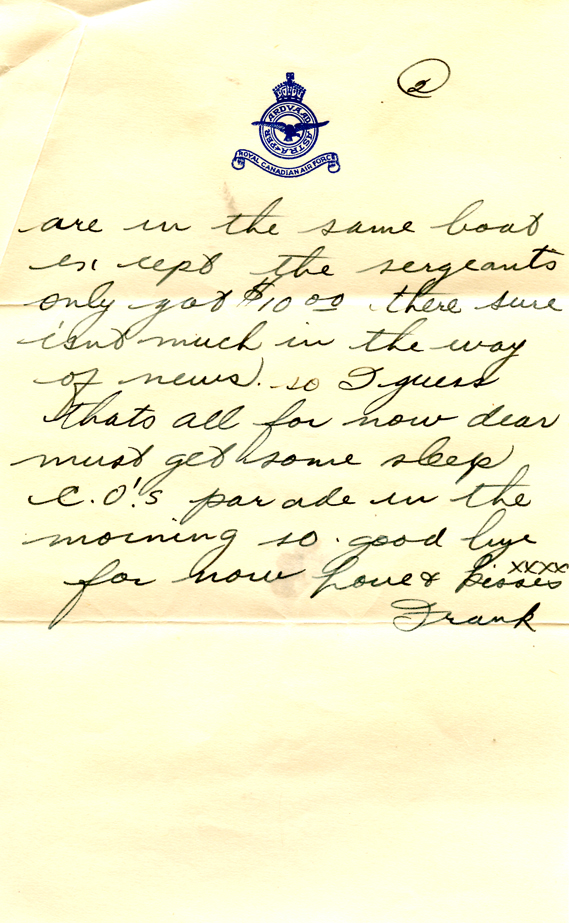 2
PER ARDVA AD ASTRA
ROYAL CANADIAN AIR FORCE
are in the same boat
except the sergeants
only got $10 00 there sure
isnt much in the way
of news. so I guess
thats all for now dear
must get some sleep
C.O's parade in the
morning so good bye
for now Love & kisses xxxx
Frank